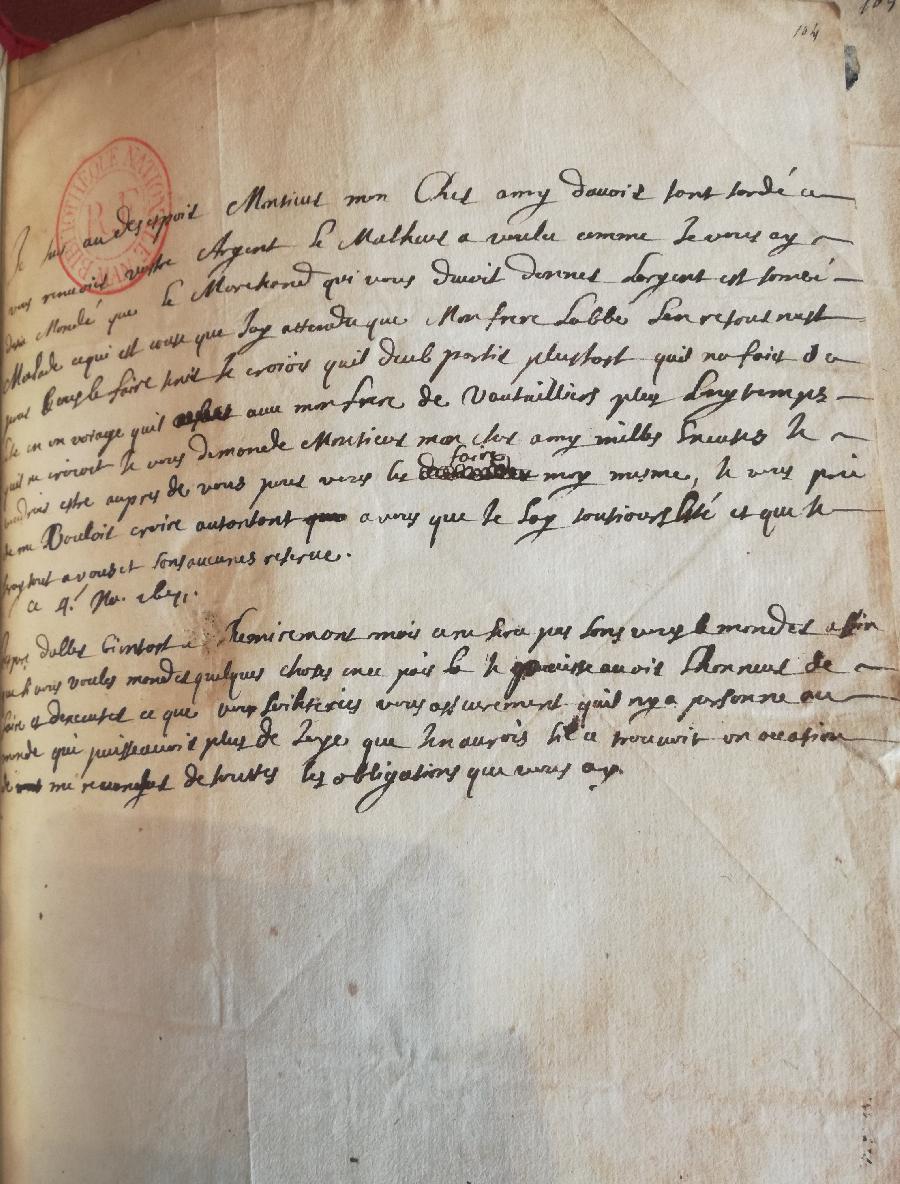 104
Je suis au desespoir Monsieur mon Cher amy davoir tant tardé a
vous renvoier vostre Argent le Malheur a voulu comme Je vous ay
desia Mendé que le Marchand qui vous devoit donner Largent est tombé
Malade ce qui est cause que Jay attendu que Mon frere Labbé sen retournast
pour vous le faire tenir Je croiois quil deub partir plustost quil na fait
este en un voiage quil avec mon frere de Vautailliers plus Longtemps
quil ne croioit Je vous demende Monsieur mon cher amy milles Excuses Je
voudrois estre aupres de vous pour vous les faire moy mesme, Je vous prie
de me Vouloir croire autant a vous que Je Lay tousiours esté et que Je
seray tout a vous et sans aucunes reserve.
ce 4. No. 1671.
Je pars dalles Cientost a Remiremont mais ce ne sera pas sans vous le mender affin
que si vous voules mender quelques choses en ce pais la Je puisse avoir Lhonneur de
faire et dexecuter ce que vous souhteries vous assurement quil ny a personne au
monde qui puisse avoir plus de Joye que Jen aurois sil se trouvoit un ocation
de me revencher de touttes les obligations que vous ay.